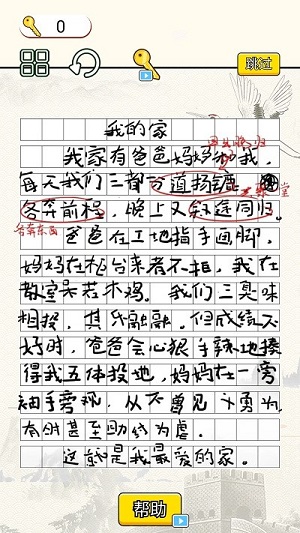 0
跳过
我的家
我家有爸爸妈妈和我,
每天我们三都分道扬镳
各奔前程,晚上又殊途同归。
各奔东西
爸爸在工地指手画脚,
妈妈在柜台来者不拒,我在
教室呆若木鸡。我们三臭味
相投,其乐融融。但成绩不
好时,爸爸会心狠手辣地揍
得我五体投地,妈妈在一旁
袖手旁观,从不曾见勇为,
有时甚至助纣为虐。
这就是我最爱的家。
帮助